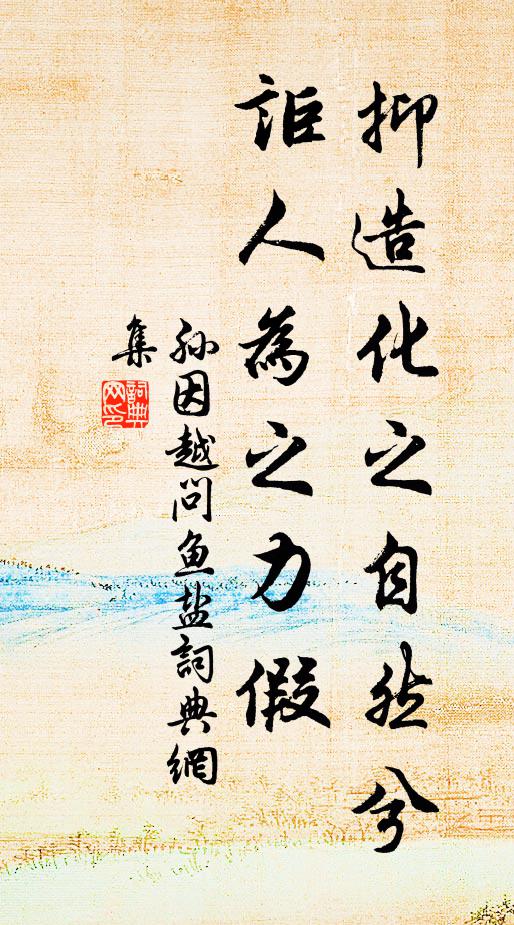 抑造化之自然兮
詎人為之力假
孙因越问鱼盐詞典網
集
詞典網印